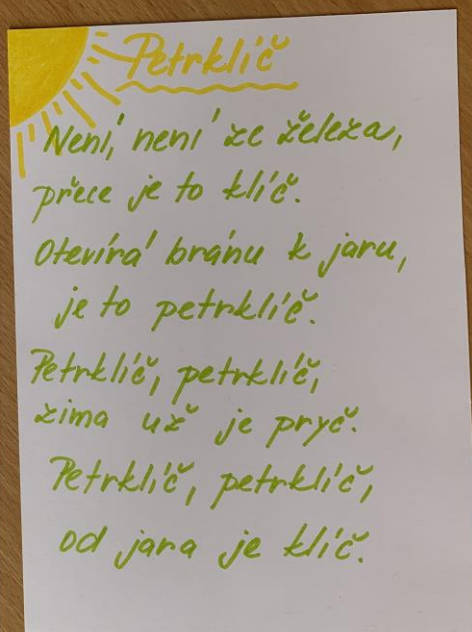 Petrklíč
Není, není ze železa,
přece je to klíč.
Otevírá bránu k jaru,
je to petrklíč.
Petrklíč, petrklíč,
zima už je pryč.
Petrklíč, petrklíč,
od jara je klíč.